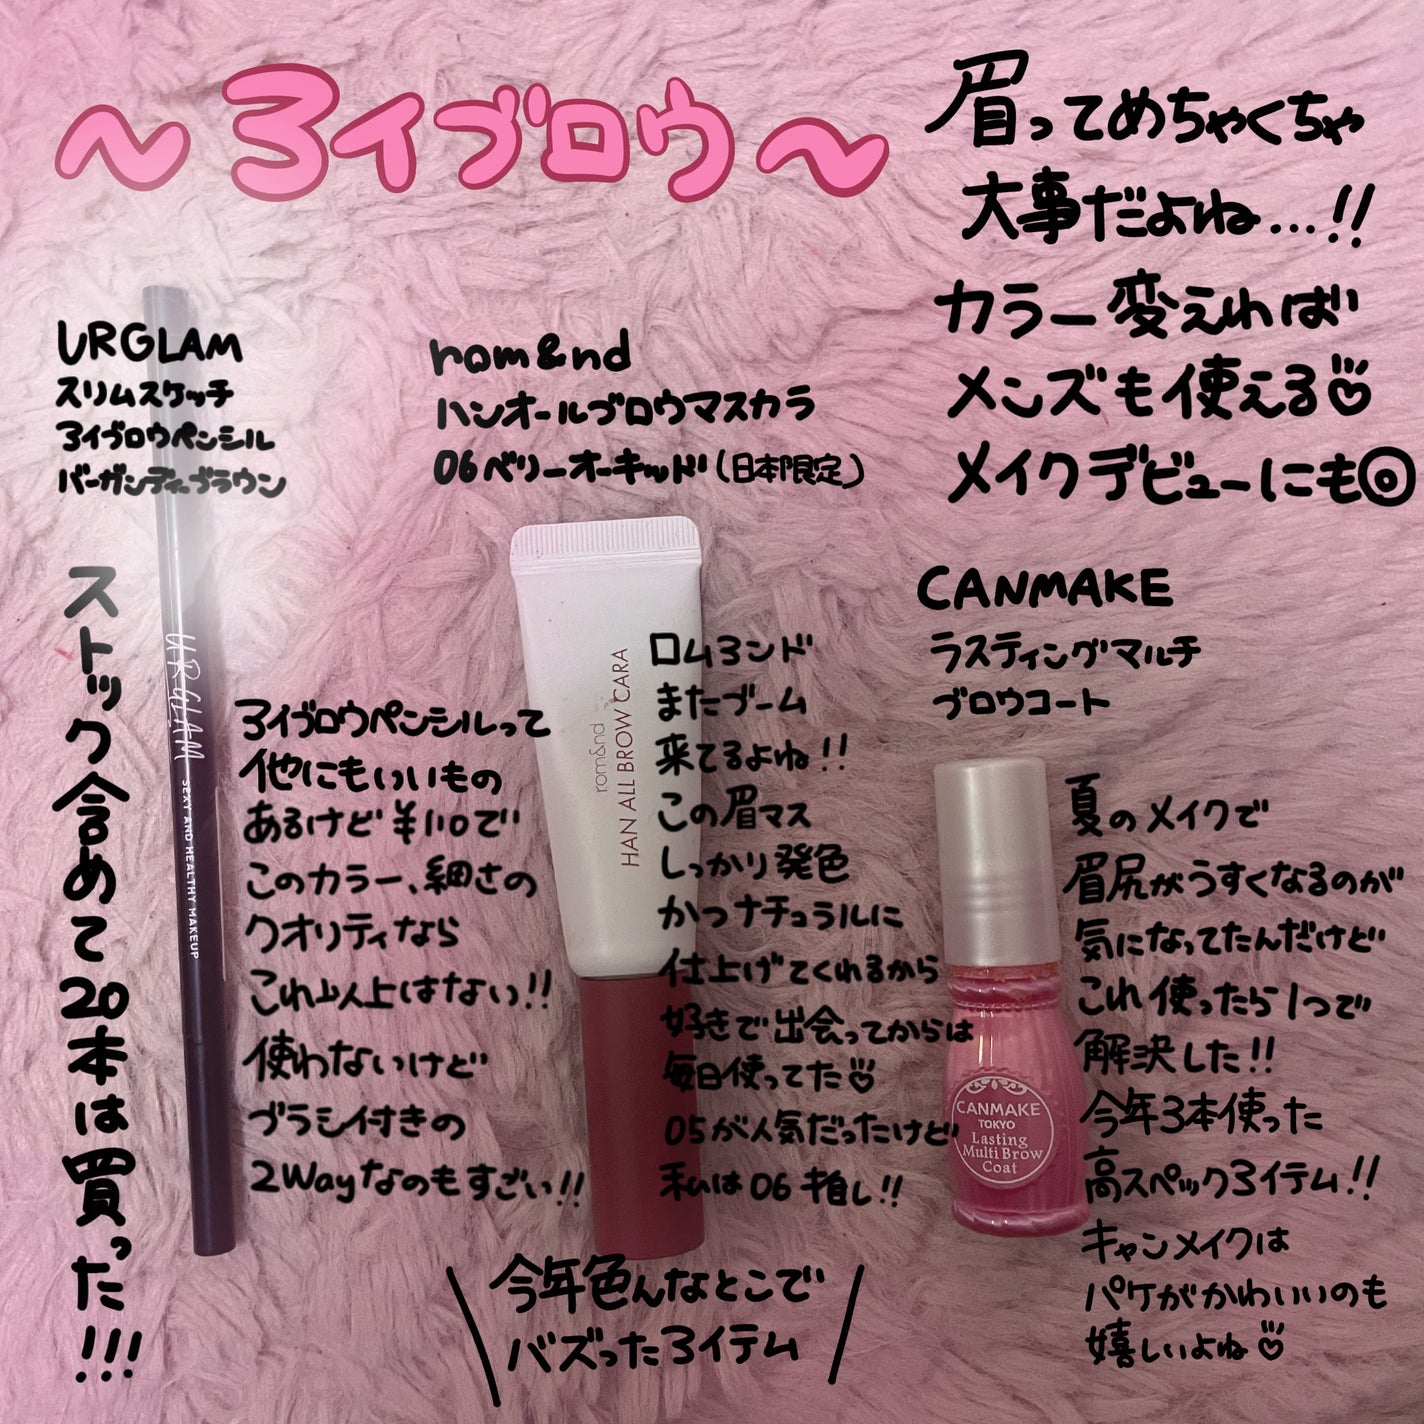 ～ヨイブロウ～
眉ってめちゃくちゃ
大事だよね...!!
カラー変えれば
メンズも使える♡
メイクデビューにも◎
URGLAM
スリムスケッチ
ヨイブロウペンシル
バーガンディーブラウン
ストック含めて20本は買った!!!
URGLAM
SEXY AND HEALTHY MAKEUP
ヨイブロウペンシルって
他にもいいもの
あるけど¥110で
このカラー、細さの
クオリティなら
これ以上はない!!
使わないけど
ブラシ付きの
2Wayなのもすごい!!
rom&nd
ハンオールブロウマスカラ
06ベリーオーキッド(日本限定)
rom&nd
HAN ALL BROW CARA
ロムヨンド
またブーム
来てるよね!!
この眉マス
しっかり発色
かつナチュラルに
仕上げてくれるから
好きで出会ってからは
毎日使ってた♡
05が人気だったけど
私は06推し!!
CANMAKE
ラスティングマルチ
ブロウコート
CANMAKE
TOKYO
Lasting
Multi Brow
Coat
夏のメイクで
眉尻がうすくなるのが
気になってたんだけど
これ使ったら1つで
解決した!!
今年3本使った
高スペックヨイテム!!
キャンメイクは
パケがかわいいのも
嬉しいよね♡
\今年色んなとこで/
バズったヨイテム